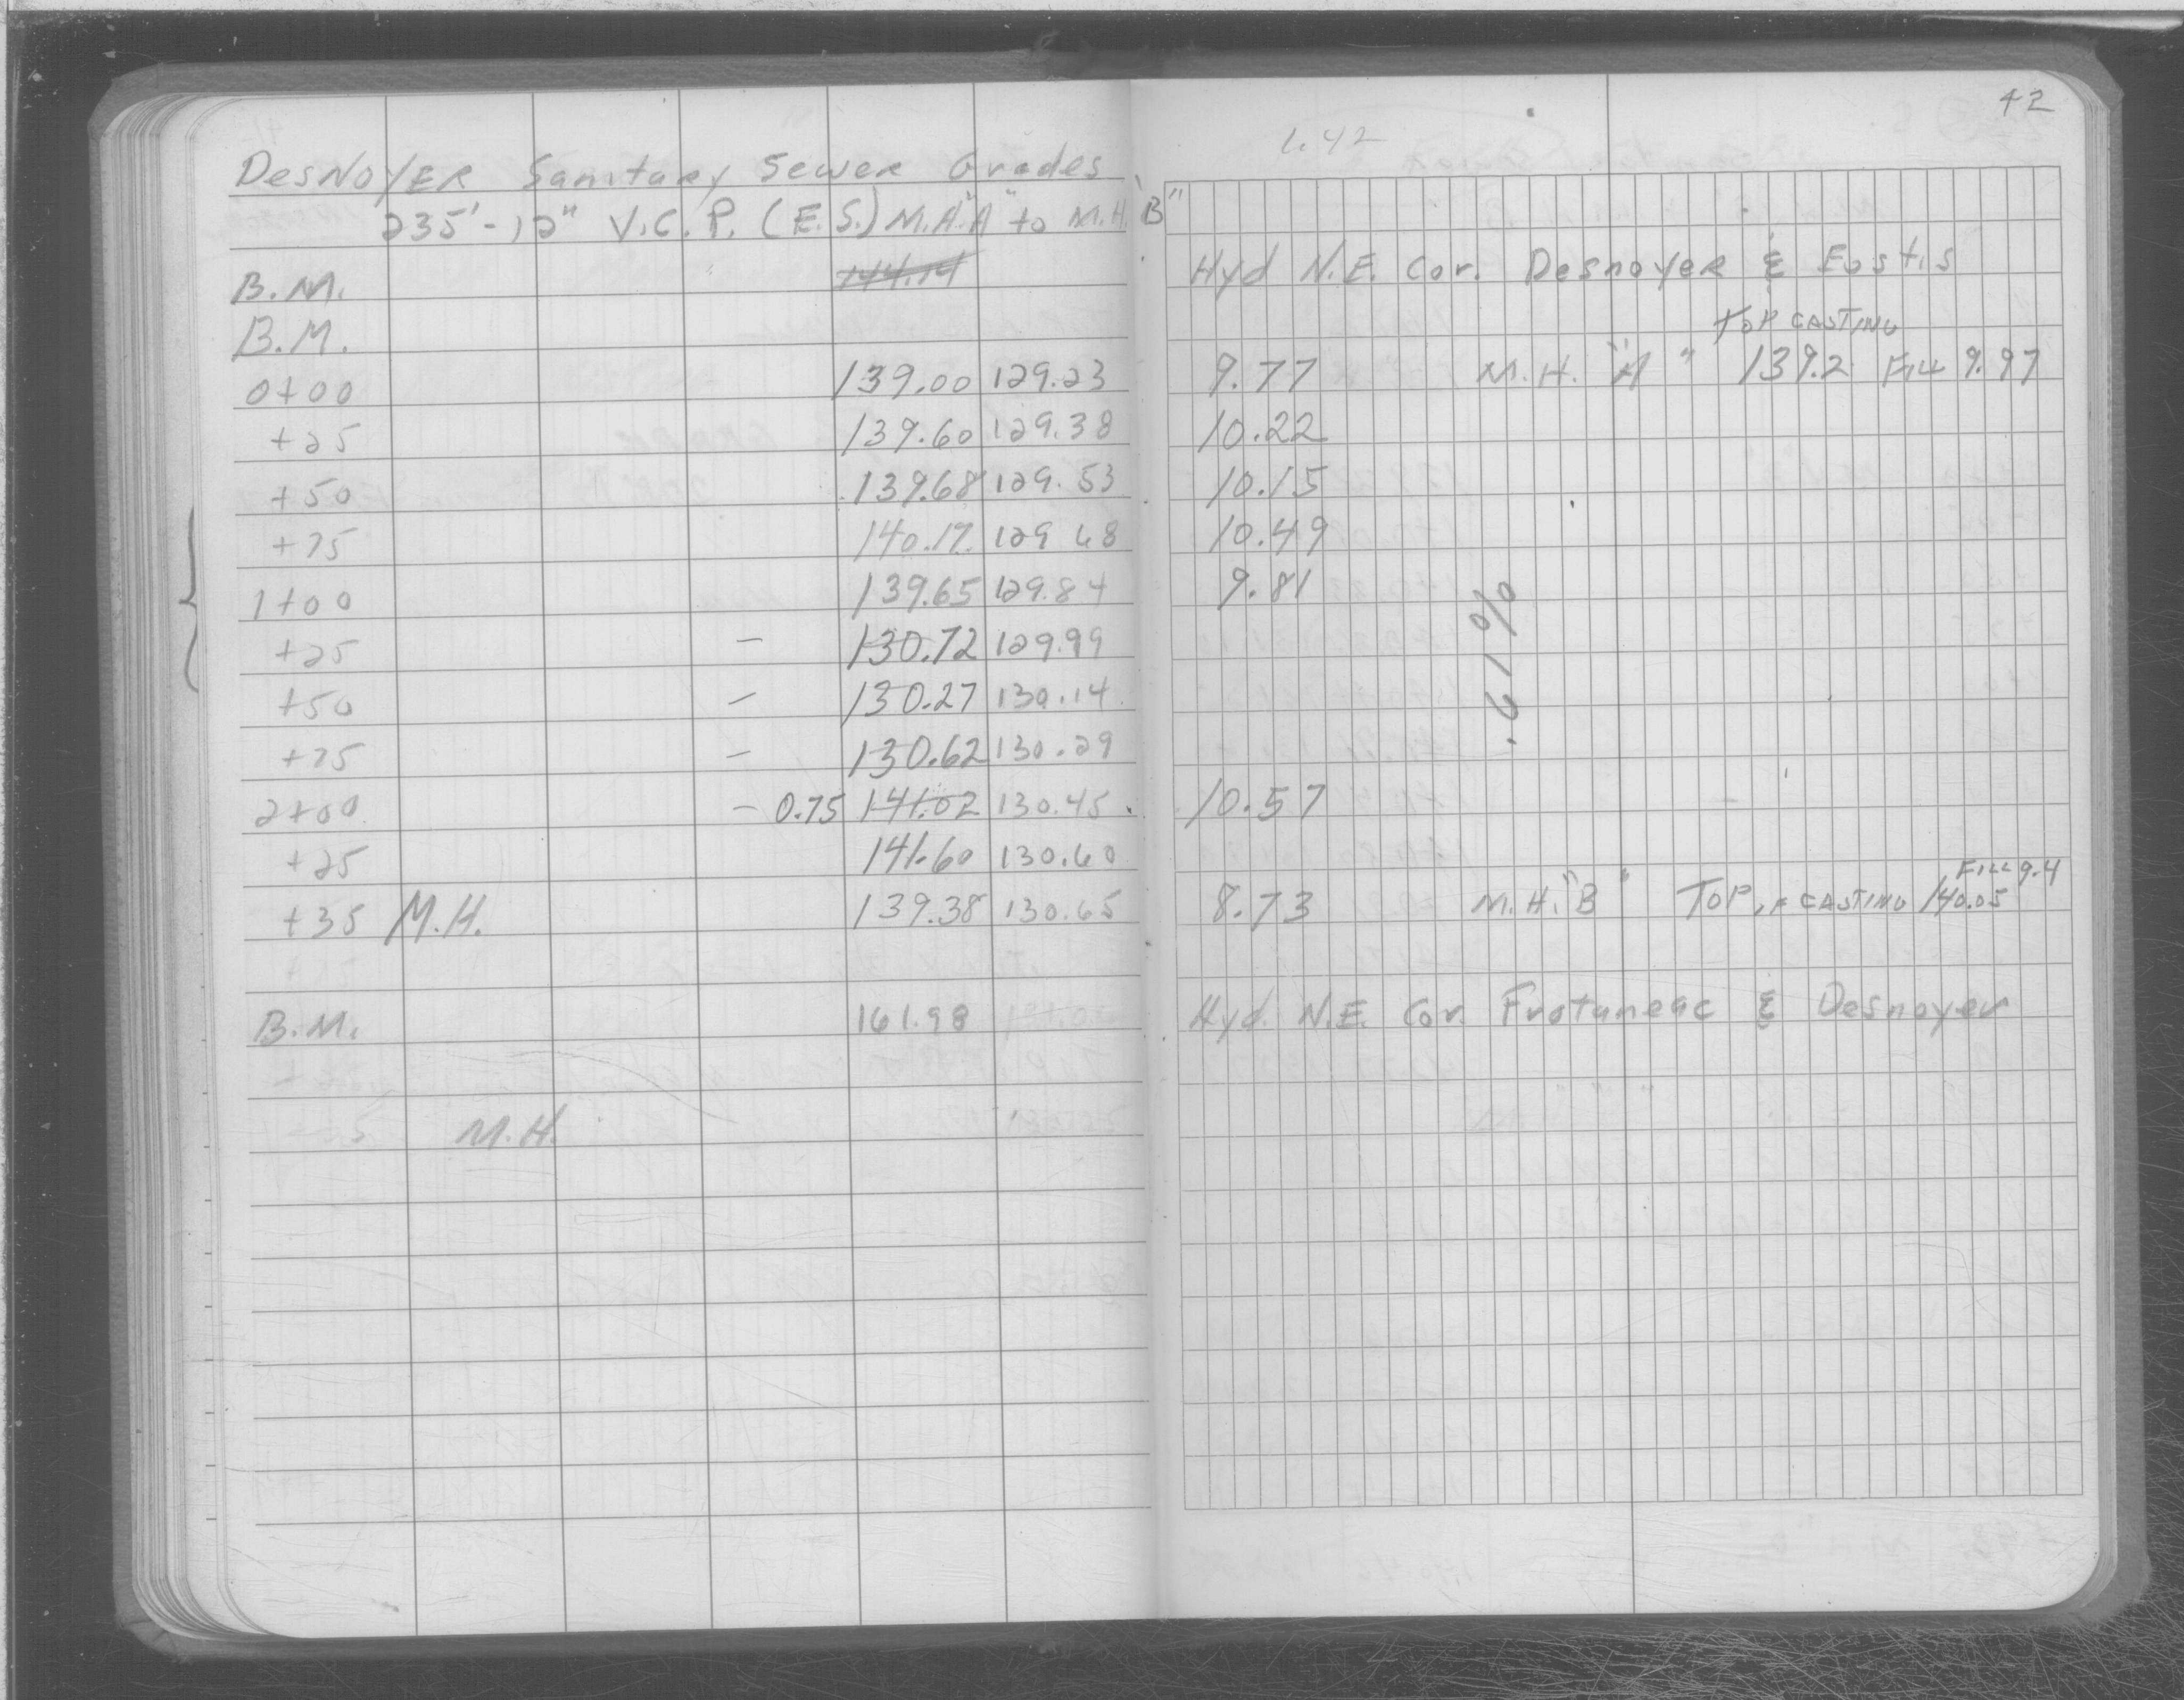 42
1.42
DesNoyer Sanitary Sewer Grades
235' - 12" V.C.P. (E.S.) M.H. "A" to M.H. "B"
B.M. 144.14 Hyd N.E. Cor. Desnoyer & Eustis
B.M. TOP CASTING
0+00 139.00 129.23 9.77 M.H. "A" 139.2 Fill 9.97
+25 139.60 129.38 10.22
+50 139.68 129.53 10.15
+75 140.17 129.68 10.49
1+00 139.65 129.84 9.81
+25 - 130.72 129.99
+50 - 130.27 130.14
+75 - 130.62 130.29
.61%
2+00 - 0.75 141.02 130.45 10.57
+25 141.60 130.60
FILL 9.4
+35 M.H. 139.38 130.65 8.73 M.H. "B" TOP OF CASTING 140.05
B.M. 161.98 Hyd. N.E. Cor. Frotaneac & Desnoyer
M.H.